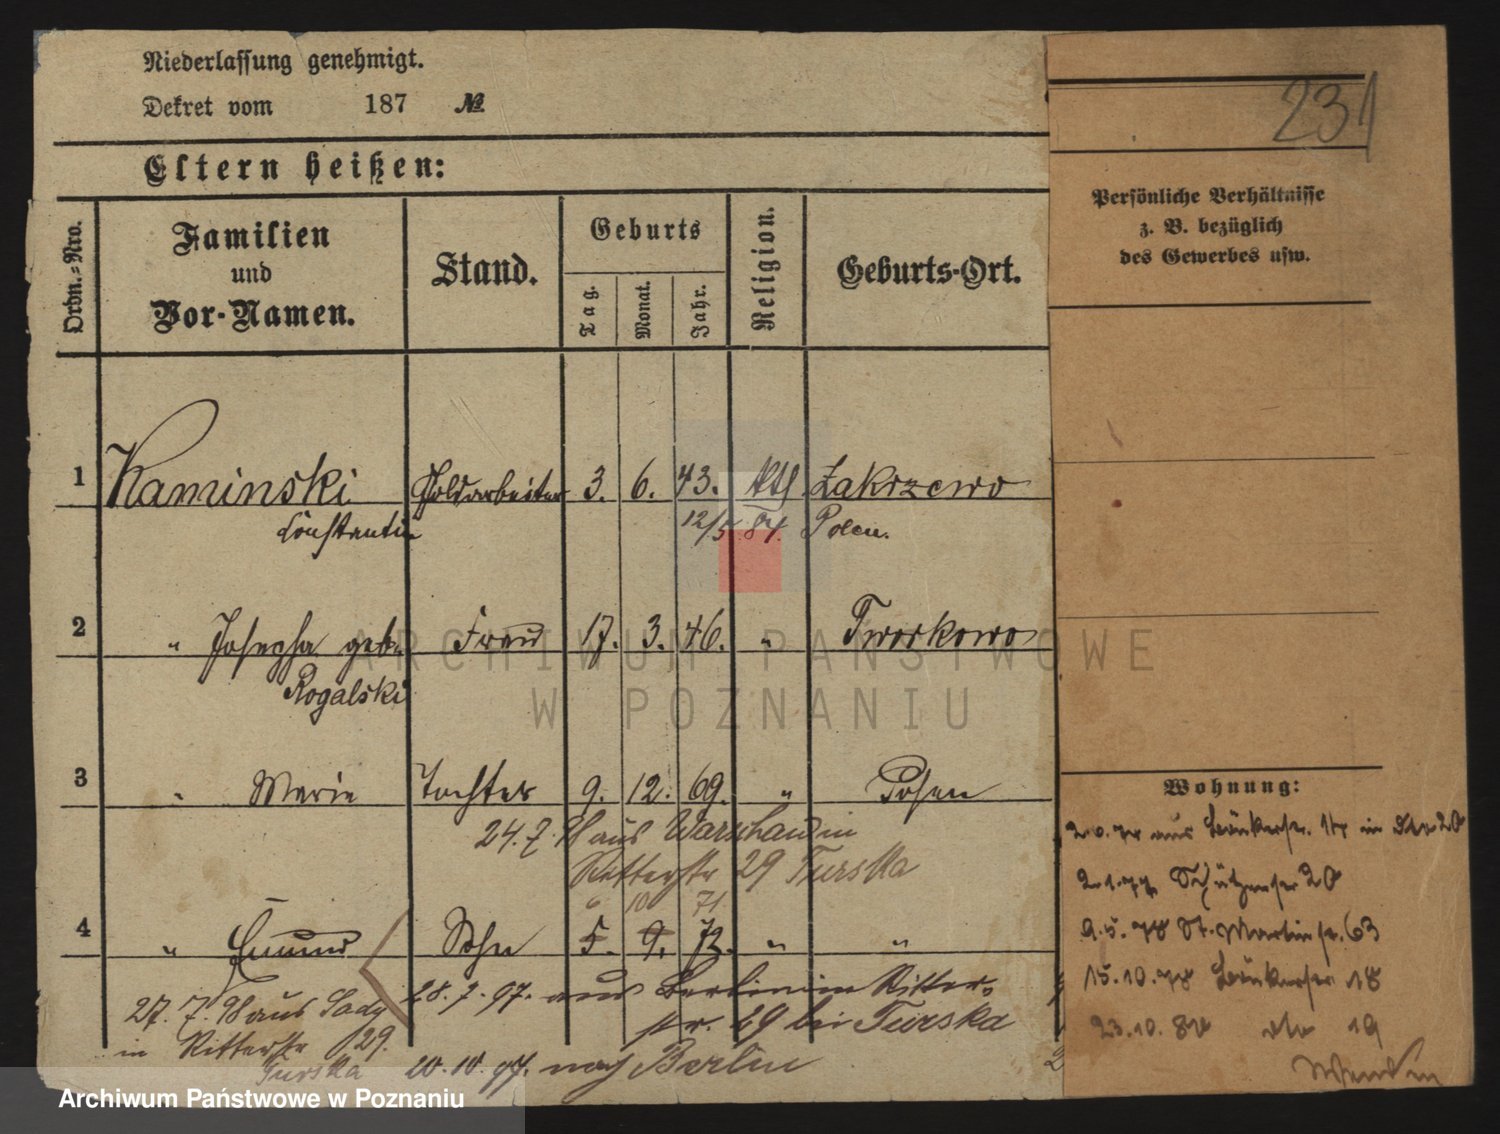 Niederlassung genehmigt.
Dekret vom 187 №
231
Eltern heißen:
Ordn.=Nro.
Familien und Vor-Namen.
Stand.
Geburts
Tag.
Monat.
Jahr.
Religion.
Geburts-Ort.
Persönliche Verhältnisse
z. B. bezüglich
des Gewerbes usw.
1 Kaminski Goldarbeiter 3. 6. 43. kth Zakrzewo
Constantin 12/5 84. Polen.
2 " Josepha geb. Frau 17. 3. 46. " Tworkowo
Rogalski
3 " Marie Tochter 9. 12. 69. " Posen
24.7. 98 aus Warschau in
Ritterstr 29 Turska
6 10 71
4 " Edmund Sohn 5. 9. 72. " "
28.7.97. aus Berlin in Ritter-
str. 29 bei Turska
27.7.98 aus
in Ritterstr 29.
Turska
10.97. nach Berlin
Wohnung:
aus Bäckerstr. in 20
2.1.77. Schützenstr 20
9.5.78 St. Martinstr. 63
15.10.78 Bäckerstr 18
23.10.80 dto 19
ARCHIWUM PAŃSTWOWE
W POZNANIU
Archiwum Państwowe w Poznaniu